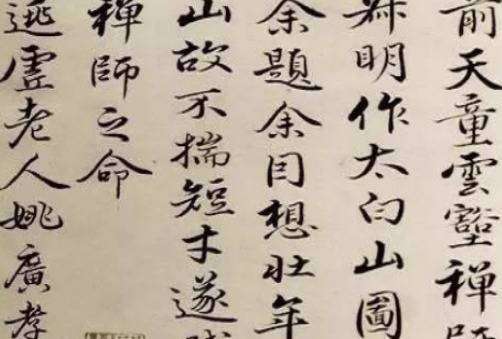 前天童雲壑禪師
叔明作太白山圖
余題余因想壯年
山故不揣短才遂
禪師之命
逃虛老人姚廣孝